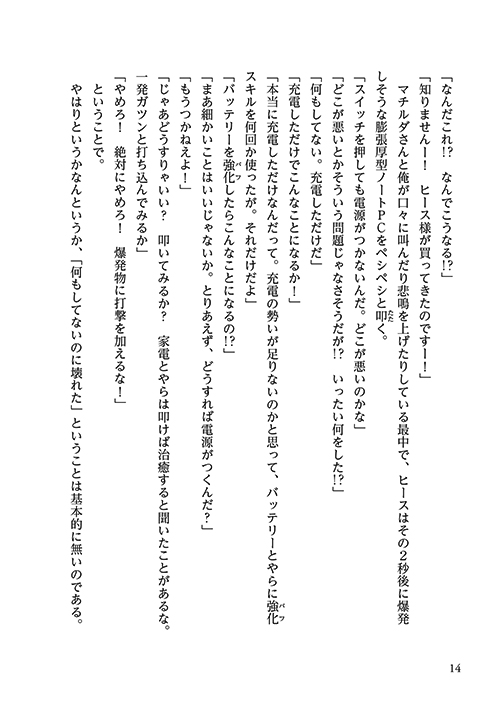 「なんだこれ!?　なんでこうなる!?」
「知りませんー！　ヒース様が買ってきたのですー！」
　マチルダさんと俺が口々に叫んだり悲鳴を上げたりしている最中で、ヒースはその２秒後に爆発
しそうな膨張厚型ノートＰＣをペシペシと叩く。
「スイッチを押しても電源がつかないんだ。どこが悪いのかな」
「どこが悪いとかそういう問題じゃなさそうだが!?　いったい何をした!?」
「何もしてない。充電しただけだ」
「充電しただけでこんなことになるか！」
「本当に充電しただけなんだって。充電の勢いが足りないのかと思って、バッテリーとやらに強化
スキルを何回か使ったが。それだけだよ」
「バッテリーを強化したらこんなことになるの!?」
「まあ細かいことはいいじゃないか。とりあえず、どうすれば電源がつくんだ？」
「もうつかねえよ！」
「じゃあどうすりゃいい？　叩いてみるか？　家電とやらは叩けば治癒すると聞いたことがあるな。
一発ガツンと打ち込んでみるか」
「やめろ！　絶対にやめろ！　爆発物に打撃を加えるな！」
　ということで。
　やはりというかなんというか、「何もしてないのに壊れた」ということは基本的に無いのである。
14